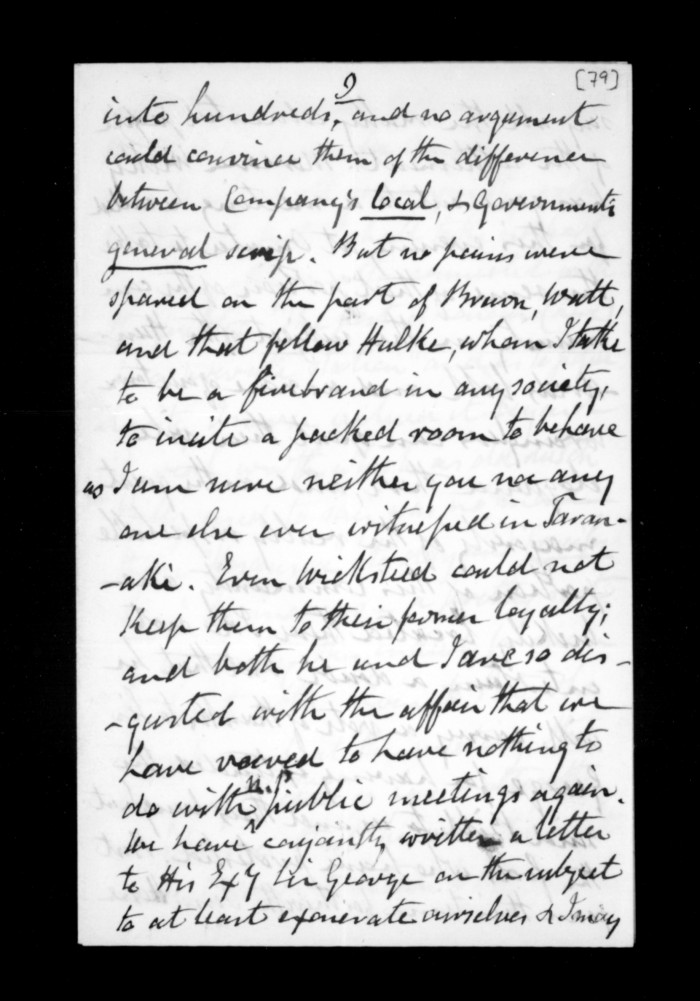 [79]
9
into hundreds, and no argument
could convince them of the difference
between Company's local, & Government's
general scrip. But no pains were
spared on the part of Brown, Watt,
and that fellow Hulke, whom I take
to be a firebrand in any society,
to incite a packed room to behave
as I am sure neither you nor any
one else ever witnessed in Taran-
-aki. Even Wicksteed could not
keep them to their former loyalty;
and both he and I are so dis-
-gusted with the affair that we
have vowed to have nothing to
do with public meetings again.
We have conjointly written a letter
to His Exy Sir George on the subject
to at least exonerate ourselves & I may